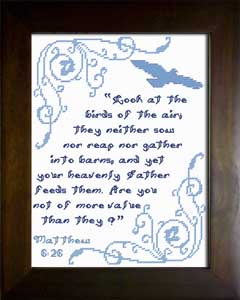 "Look at the
birds of the air;
they neither sow
nor reap nor gather
into barns, and yet
your heavenly Father
feeds them. Are you
not of more value
than they?"
Matthew
6:26